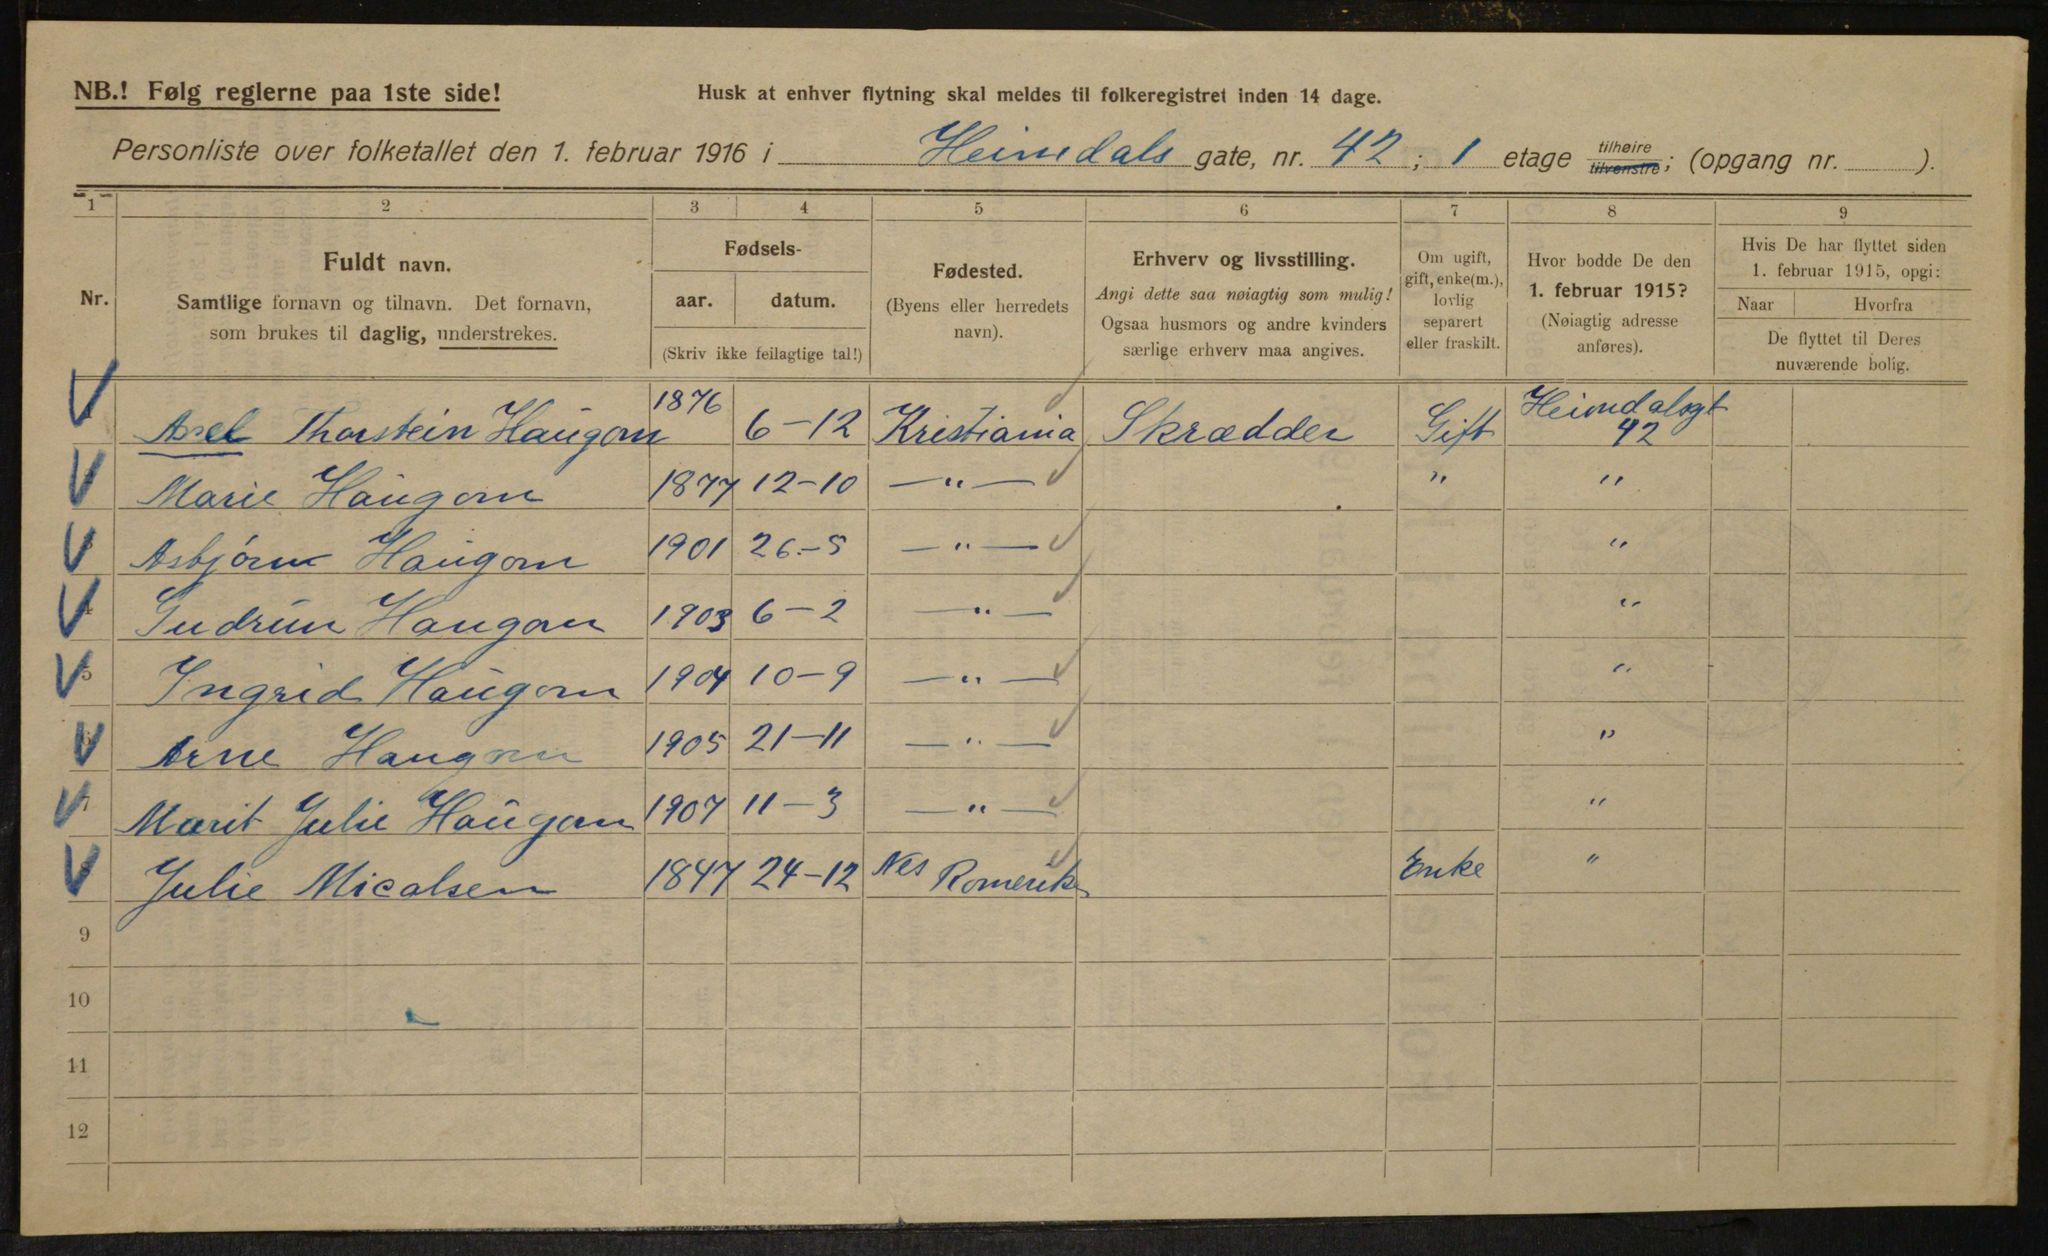 NB.! Følg reglerne paa 1ste side!
Husk at enhver flytning skal meldes til folkeregistret inden 14 dage.
Personliste over folketallet den 1. februar 1916 i Heimdals gate, nr. 42 ; 1 etage tilhøire tilvenstre; (opgang nr. ).
1 2 3 4 5 6 7 8 9
Nr.
Fuldt navn.
Samtlige fornavn og tilnavn. Det fornavn,
som brukes til daglig, understrekes.
Fødsels-
aar. datum.
(Skriv ikke feilagtige tal!)
Fødested.
(Byens eller herredets
navn).
Erhverv og livsstilling.
Angi dette saa nøiagtig som mulig!
Ogsaa husmors og andre kvinders
særlige erhverv maa angives.
Om ugift,
gift, enke(m.),
lovlig
separert
eller fraskilt.
Hvor bodde De den
1. februar 1915?
(Nøiagtig adresse
anføres).
Hvis De har flyttet siden
1. februar 1915, opgi:
Naar Hvorfra
De flyttet til Deres
nuværende bolig.
Axel Thorstein Haugom 1876 6-12 Kristiania Skrædder Gift Heimdalsgt 42
Marie Haugom 1877 12-10 —"— " "
Asbjørn Haugom 1901 26-5 —"— "
4 Gudrun Haugom 1903 6-2 —"— "
5 Ingrid Haugom 1904 10-9 —"— "
6 Arne Haugom 1905 21-11 —"— "
7 Marit Julie Haugom 1907 11-3 —"— "
Julie Micalsen 1847 24-12 Nes Romerike Enke "
9
10
11
12